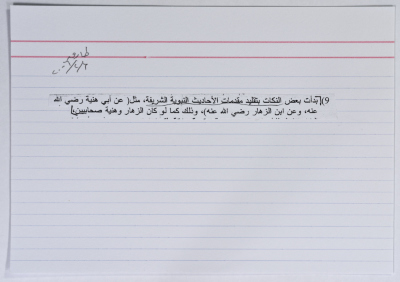 9)[بدأت بعض النكات بتقليد مقدمات الأحاديث النبوية الشريفة، مثل( عن أبي هنية رضي الله
عنه، وعن ابن الزهار رضي الله عنه)، وذلك كما لو كان الزهار وهنية صحابيين.]